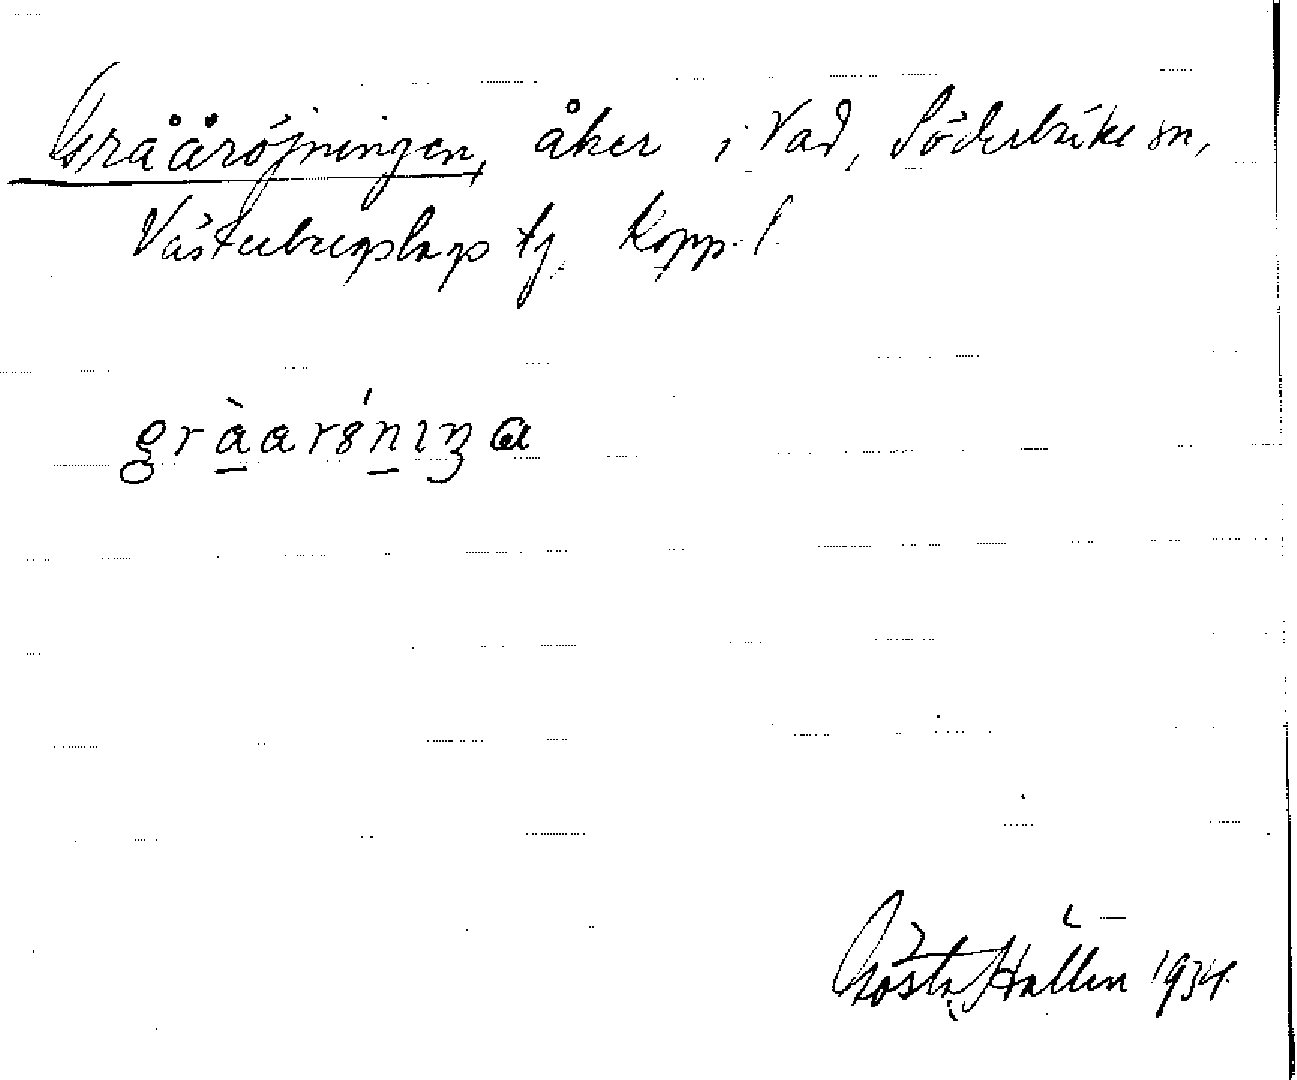 Grååröjningen, åker i Vad, Söderbärke sn,
Västerbergslags tg, Kopp. l.
gràarönıŋa
Gösta Hallén 1934.